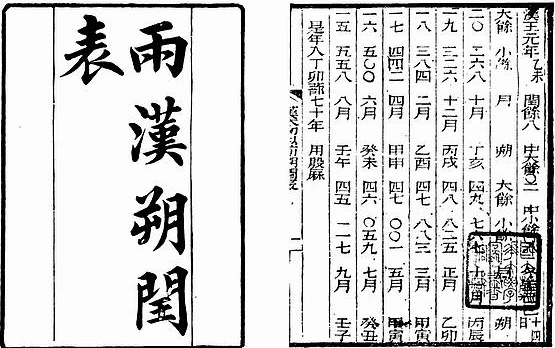 兩漢朔閏
表
漢王元年乙未 閏餘八 中大餘〇二 中小餘
大餘 小餘 月 朔 大餘 小餘 月 朔
二〇 二六八 十月 丁亥 四九 七六七 十一月 丙辰
一九 三二六 十二月 丙戌 四八 八二五 正月 乙卯
一八 三八四 二月 乙酉 四七 八八三 三月 甲寅
一七 四四二 四月 甲申 四七 〇〇一 五月 甲寅
一六 五〇〇 六月 癸未 四六 〇五九 七月 癸丑
一五 五五八 八月 壬午 四五 一一七 九月 壬子
是年入丁卯蔀七十年 用殷厤